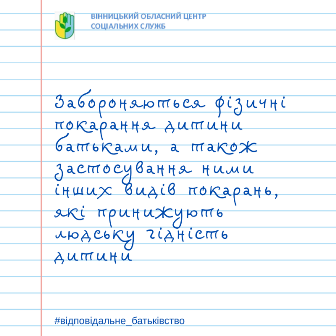 ВІННИЦЬКИЙ ОБЛАСНИЙ ЦЕНТР
СОЦІАЛЬНИХ СЛУЖБ
Забороняються фізичні
покарання дитини
батьками, а також
застосування ними
інших видів покарань,
які принижують
людську гідність
дитини
#відповідальне_батьківство